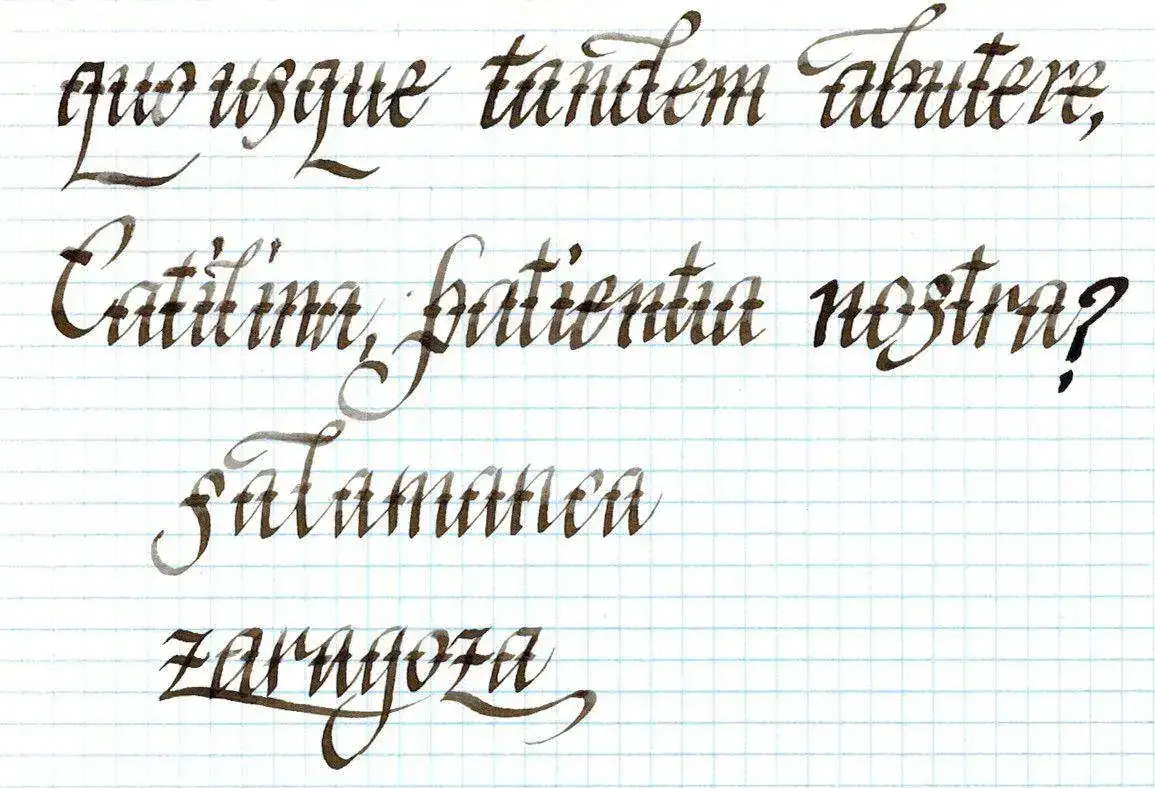 quousque tandem abutere,
Catilina, patientia nostra?
salamanca
zaragoza